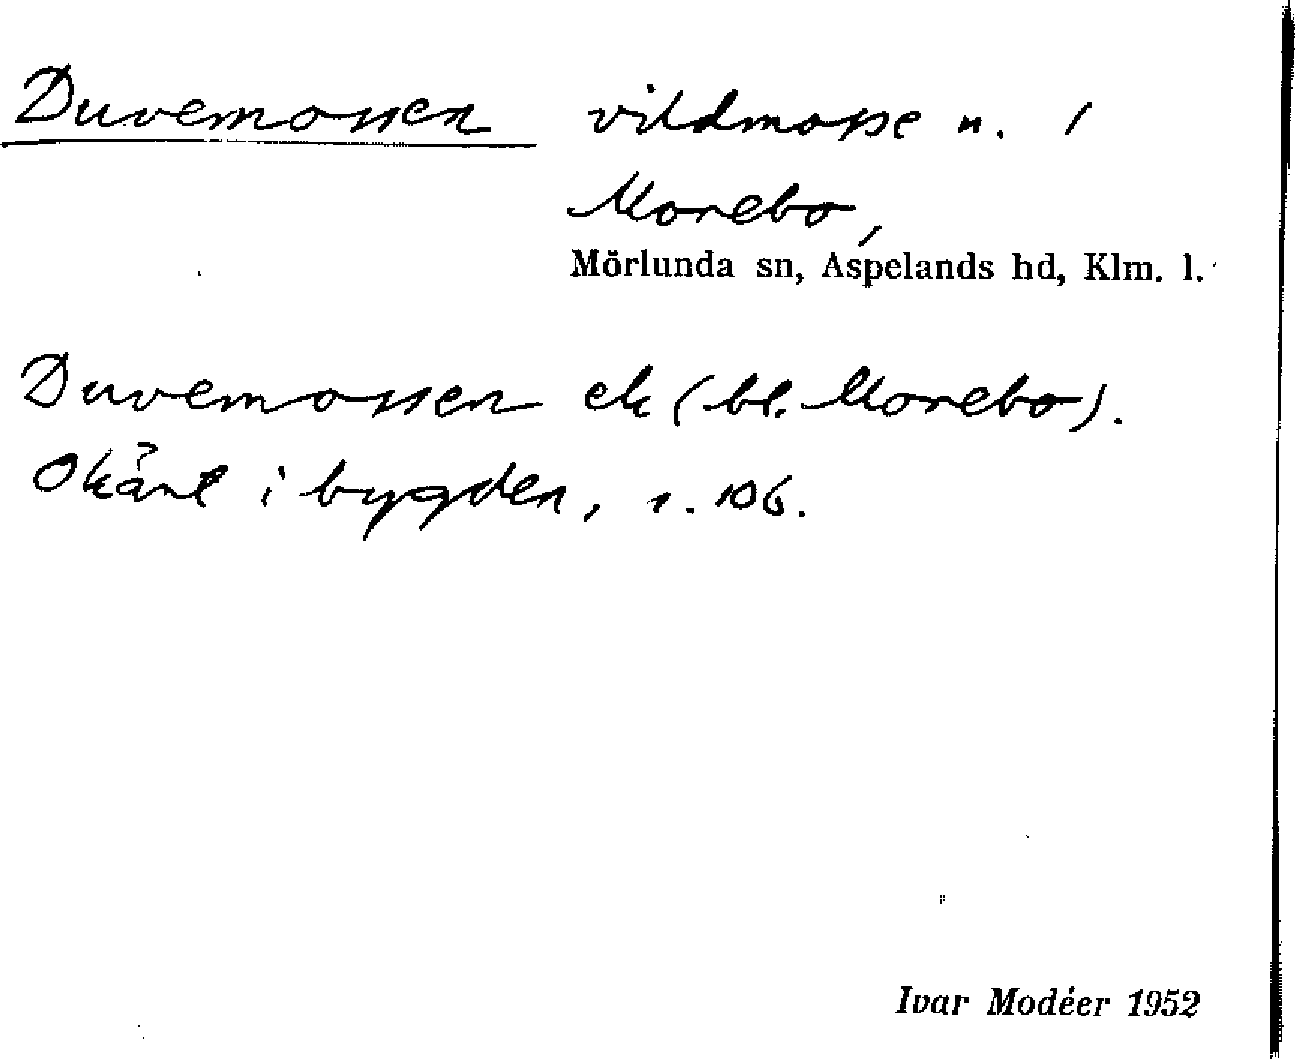 Duvemossen vildmosse n. 1
Morebo,
Mörlunda sn, Aspelands hd, Klm. l.
Duvemossen ek (bl. Morebo).
Okänt i bygden, s. 106.
Ivar Modéer 1952